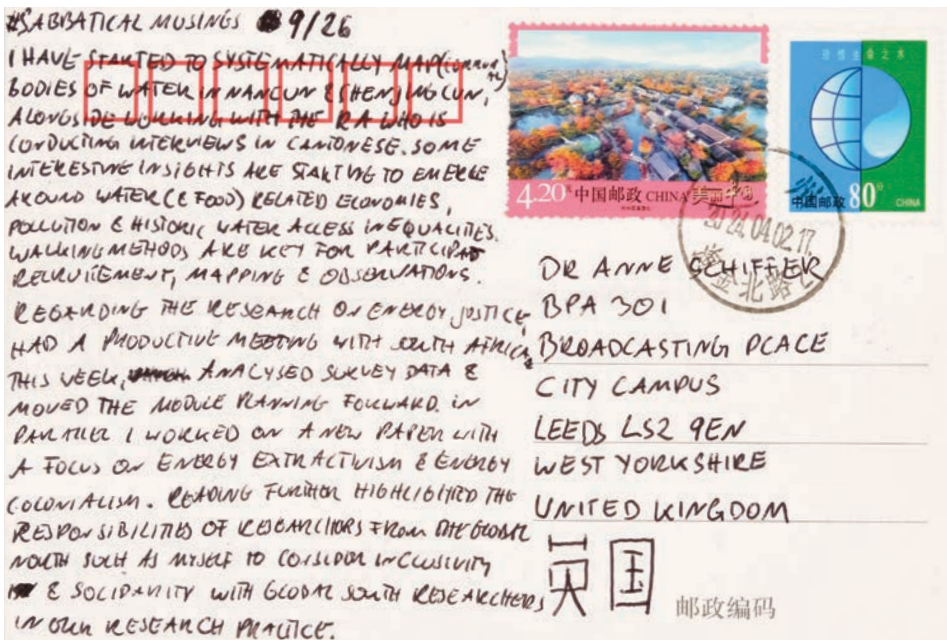 #SABBATICAL MUSINGS 9/26
I HAVE STARTED TO SYSTEMATICALLY MAP
BODIES OF WATER IN NANCUN & SHENJINGCUN,
ALONGSIDE WORKING WITH THE RA WHO IS
CONDUCTING INTERVIEWS IN CANTONESE. SOME
INTERESTING INSIGHTS ARE STARTING TO EMERGE
AROUND WATER (& FOOD) RELATED ECONOMIES,
POLLUTION & HISTORIC WATER ACCESS INEQUALITIES.
WALKING METHODS ARE KEY FOR PARTICIPANT
RECRUITEMENT, MAPPING & OBSERVATIONS.
REGARDING THE RESEARCH ON ENERGY JUSTICE,
HAD A PRODUCTIVE MEETING WITH SOUTH AFRICA
THIS WEEK, ANALYSED SURVEY DATA &
MOVED THE MODULE PLANNING FORWARD. IN
PARALLEL I WORKED ON A NEW PAPER WITH
A FOCUS ON ENERGY EXTRACTIVISM & ENERGY
COLONIALISM. READING FURTHER HIGHLIGHTED THE
RESPONSIBILITIES OF RESEARCHERS FROM THE GLOBAL
NORTH SUCH AS MYSELF TO CONSIDER INCLUSIVITY
& SOLIDARITY WITH GLOBAL SOUTH RESEARCHERS
IN OUR RESEARCH PRACTICE.
4.20元 中国邮政 CHINA 美丽中国
珍惜生命之水
中国邮政 80分 CHINA
2024.04.02.17
金北路
DR ANNE SCHIFFER
BPA 301
BROADCASTING PLACE
CITY CAMPUS
LEEDS LS2 9EN
WEST YORKSHIRE
UNITED KINGDOM
英国
邮政编码